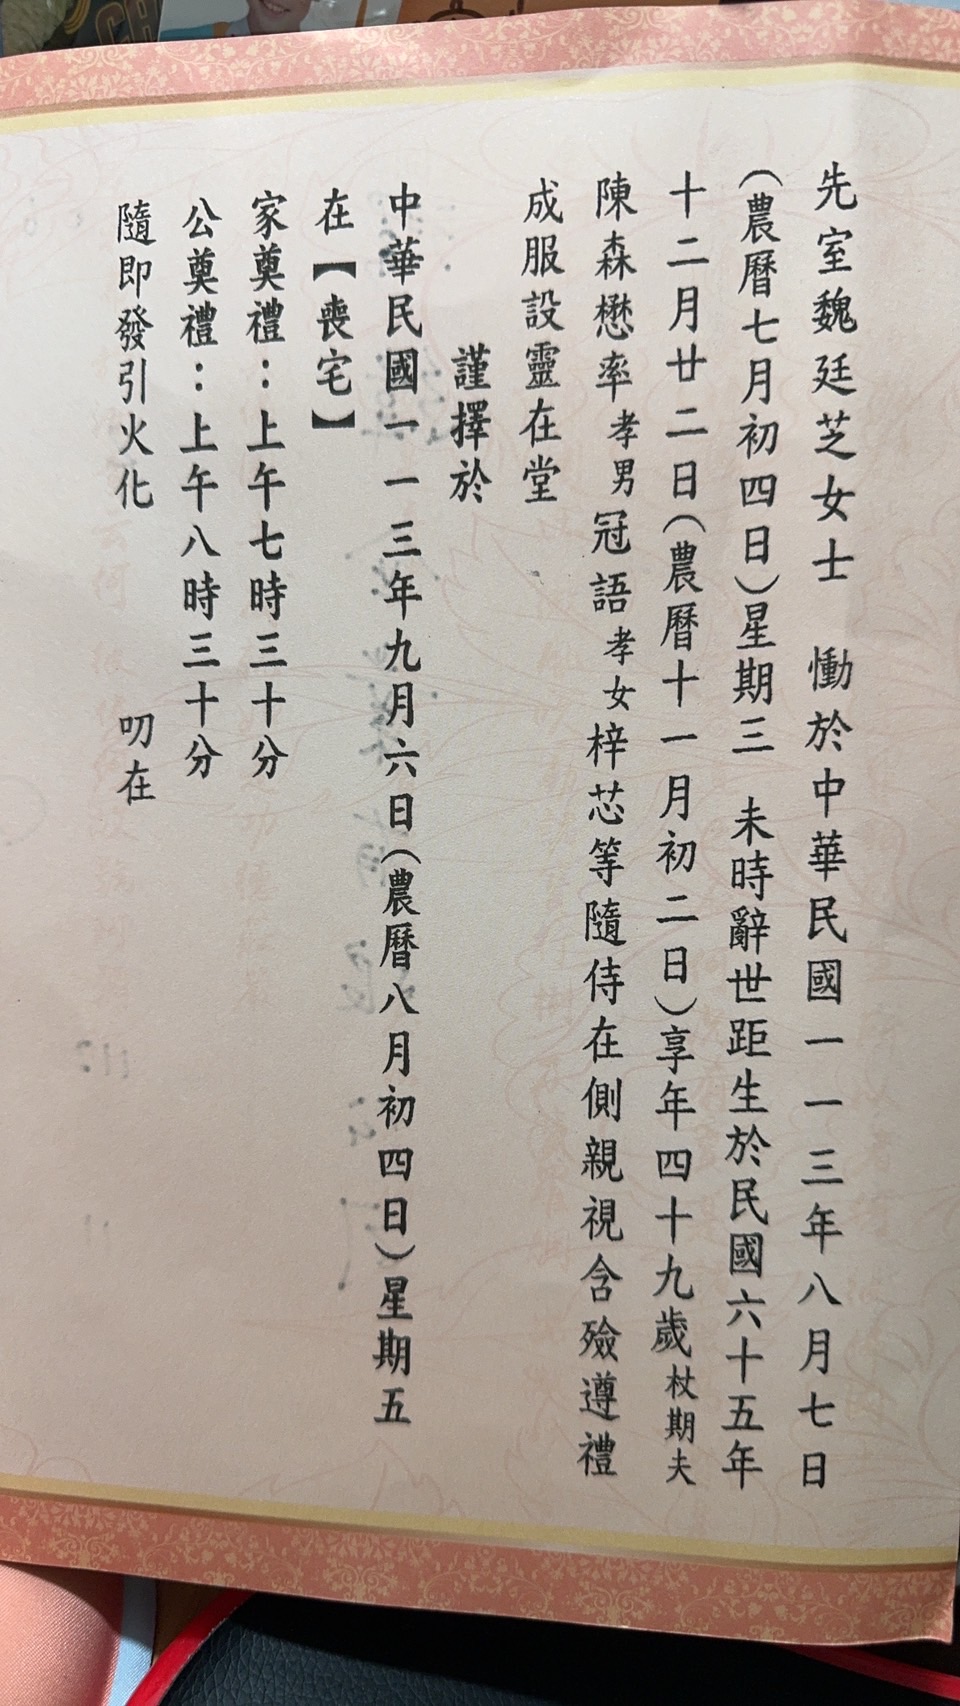 先室魏廷芝女士 慟於中華民國一一三年八月七日
(農曆七月初四日)星期三 未時辭世距生於民國六十五年
十二月廿二日(農曆十一月初二日)享年四十九歲杖期夫
陳森懋率孝男冠語孝女梓芯等隨侍在側親視含殮遵禮
成服設靈在堂
謹擇於
中華民國一一三年九月六日(農曆八月初四日)星期五
在【喪宅】
家奠禮:上午七時三十分
公奠禮:上午八時三十分
隨即發引火化 叨在